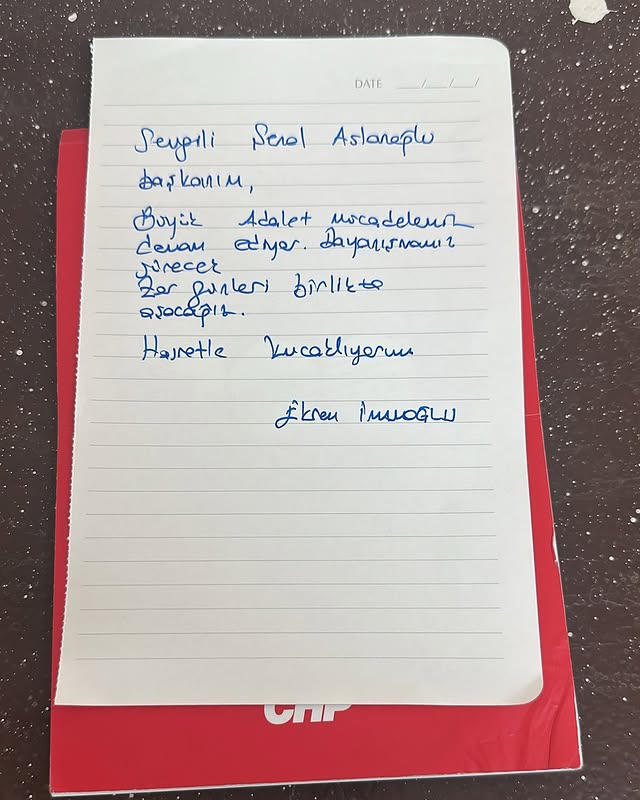 DATE __/__/__/
Sevgili Şenol Aslanoğlu
başkanım,
Büyük Adalet mücadelemiz
devam ediyor. Dayanışmamız
sürecek
Zor günleri birlikte
aşacağız.
Hasretle kucaklıyorum
Ekrem İMAMOĞLU
CHP